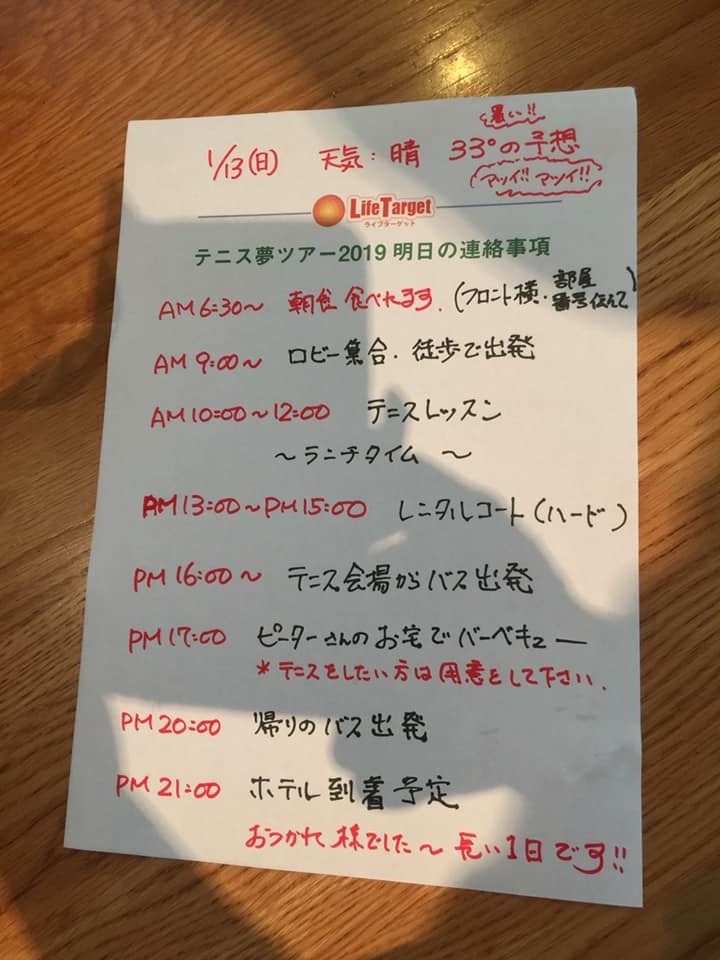 暑い!!
1/13(日) 天気:晴 33°の予想
アツイ!! アツイ!!
Life Target
ライフターゲット
テニス夢ツアー2019 明日の連絡事項
AM 6:30〜 朝食 食べれます。(フロント横・部屋番号伝えて)
AM 9:00〜 ロビー集合・徒歩で出発
AM 10:00〜12:00 テニスレッスン
〜ランチタイム 〜
AM 13:00〜PM 15:00 レンタルコート(ハード)
PM 16:00〜 テニス会場からバス出発
PM 17:00 ピーターさんのお宅でバーベキュー
*テニスをしたい方は用意をして下さい.
PM 20:00 帰りのバス出発
PM 21:00 ホテル到着予定
おつかれ様でした〜 長い1日です!!